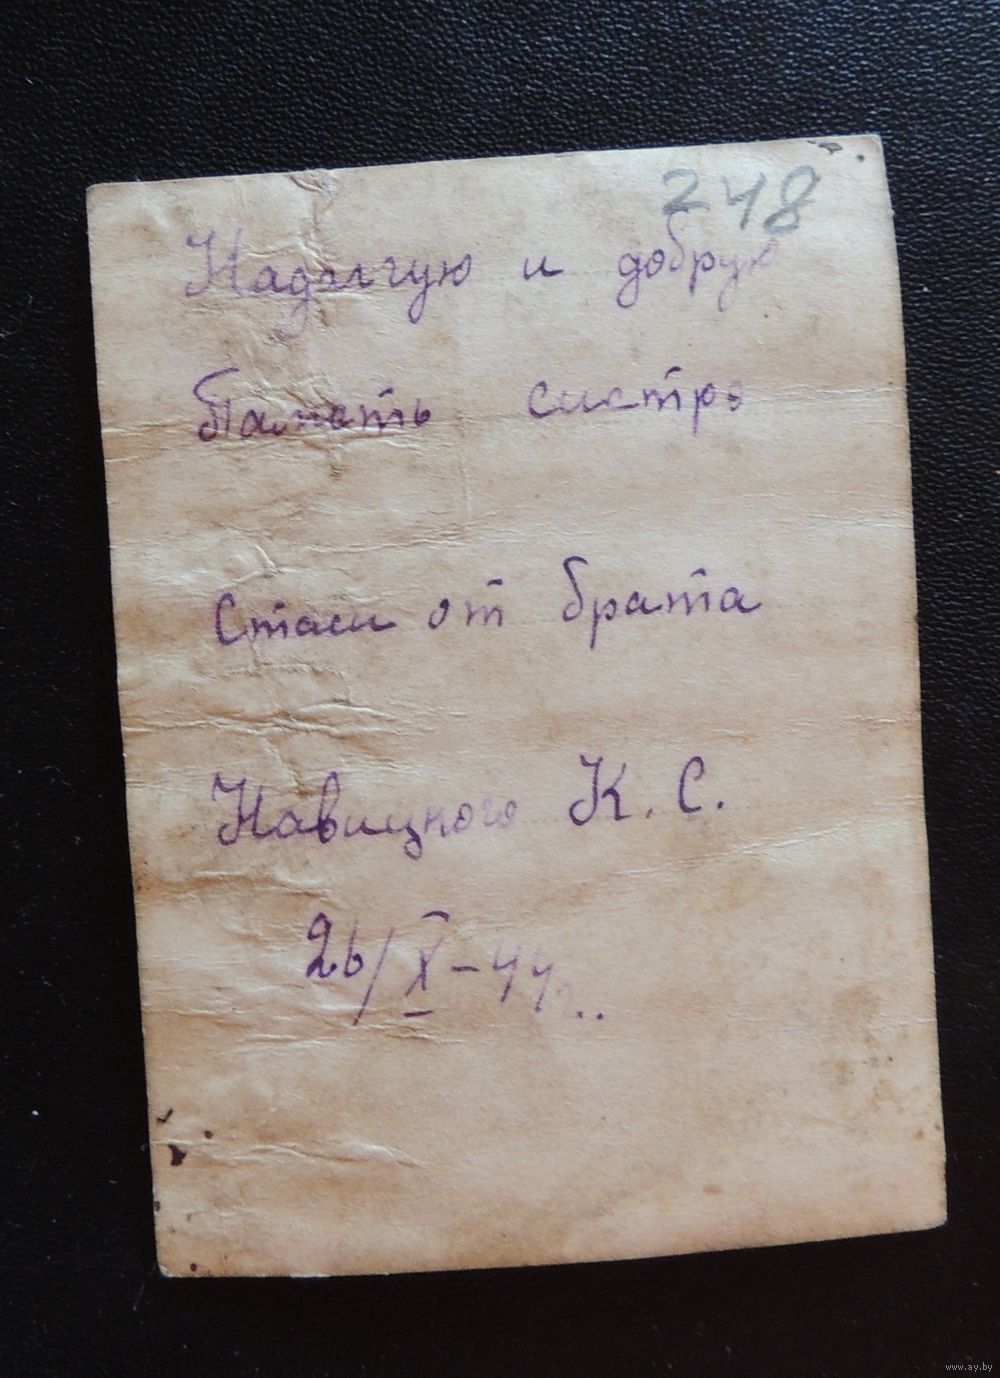 248
Надолгую и добрую
Память систре
Стаси от брата
Навицкого К. С.
26/X-44г..
www.ay.by